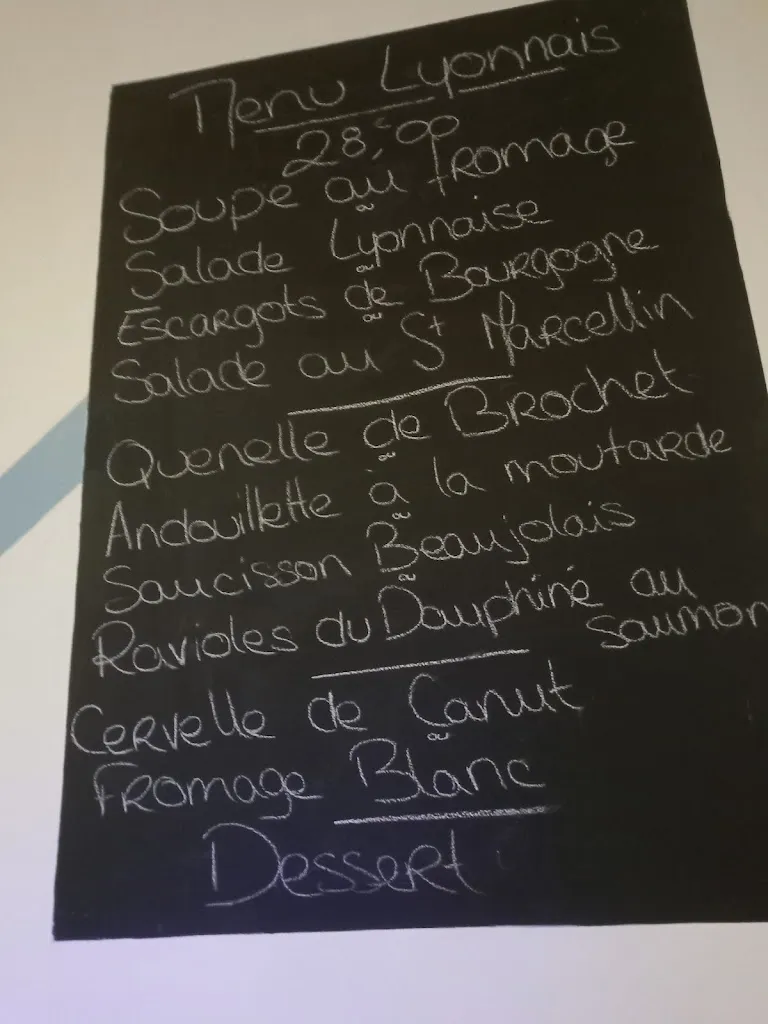 Menu Lyonnais
28,€00
Soupe au fromage
ou
Salade Lyonnaise
ou
Escargots de Bourgogne
ou
Salade au St Marcellin
Quenelle de Brochet
ou
Andouillette à la moutarde
ou
Saucisson Beaujolais
ou
Ravioles du Dauphiné au
saumon
Cervelle de Canut
ou
Fromage Blanc
Dessert